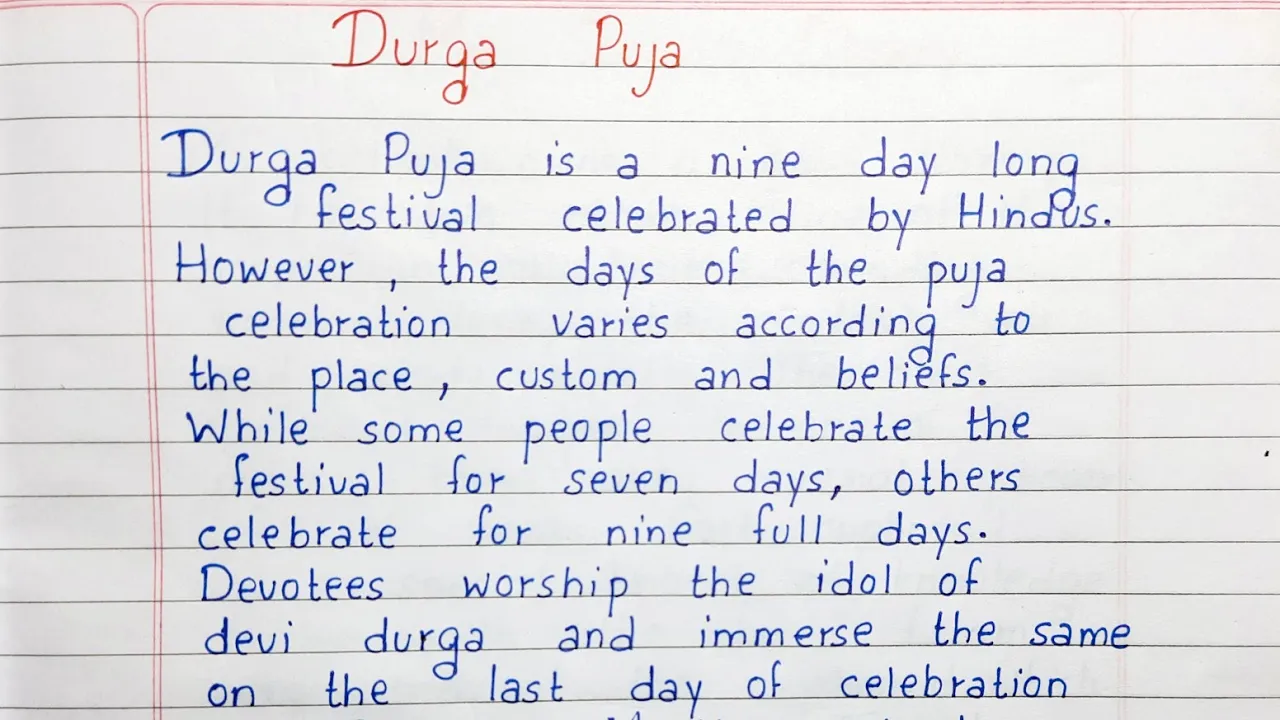 Durga Puja
Durga Puja is a nine day long
festival celebrated by Hindus.
However, the days of the puja
celebration varies according to
the place, custom and beliefs.
While some people celebrate the
festival for seven days, others
celebrate for nine full days.
Devotees worship the idol of
devi durga and immerse the same
on the last day of celebration